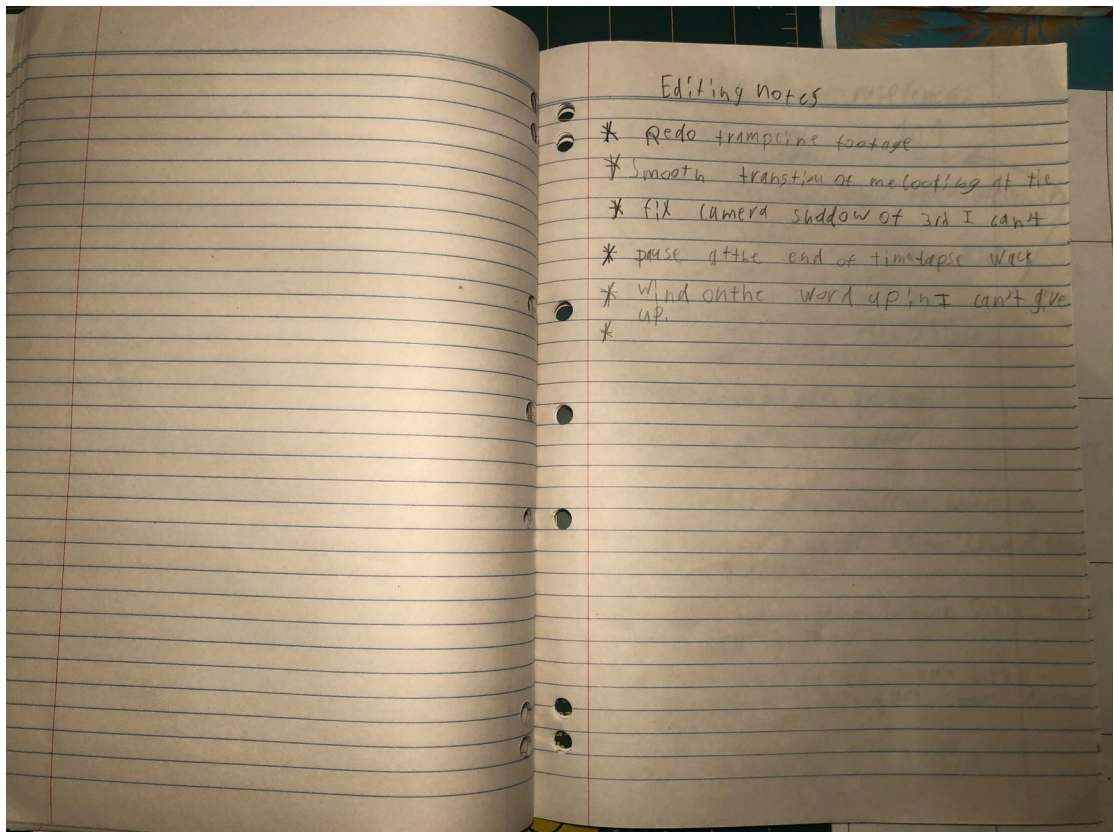 Editing notes
* Redo trampoline footage
* Smooth transtion of me looking at the
* fix camera shadow of 3rd I can't
* pause at the end of timelapse walk
* Wind on the word up in I can't give
up.
*